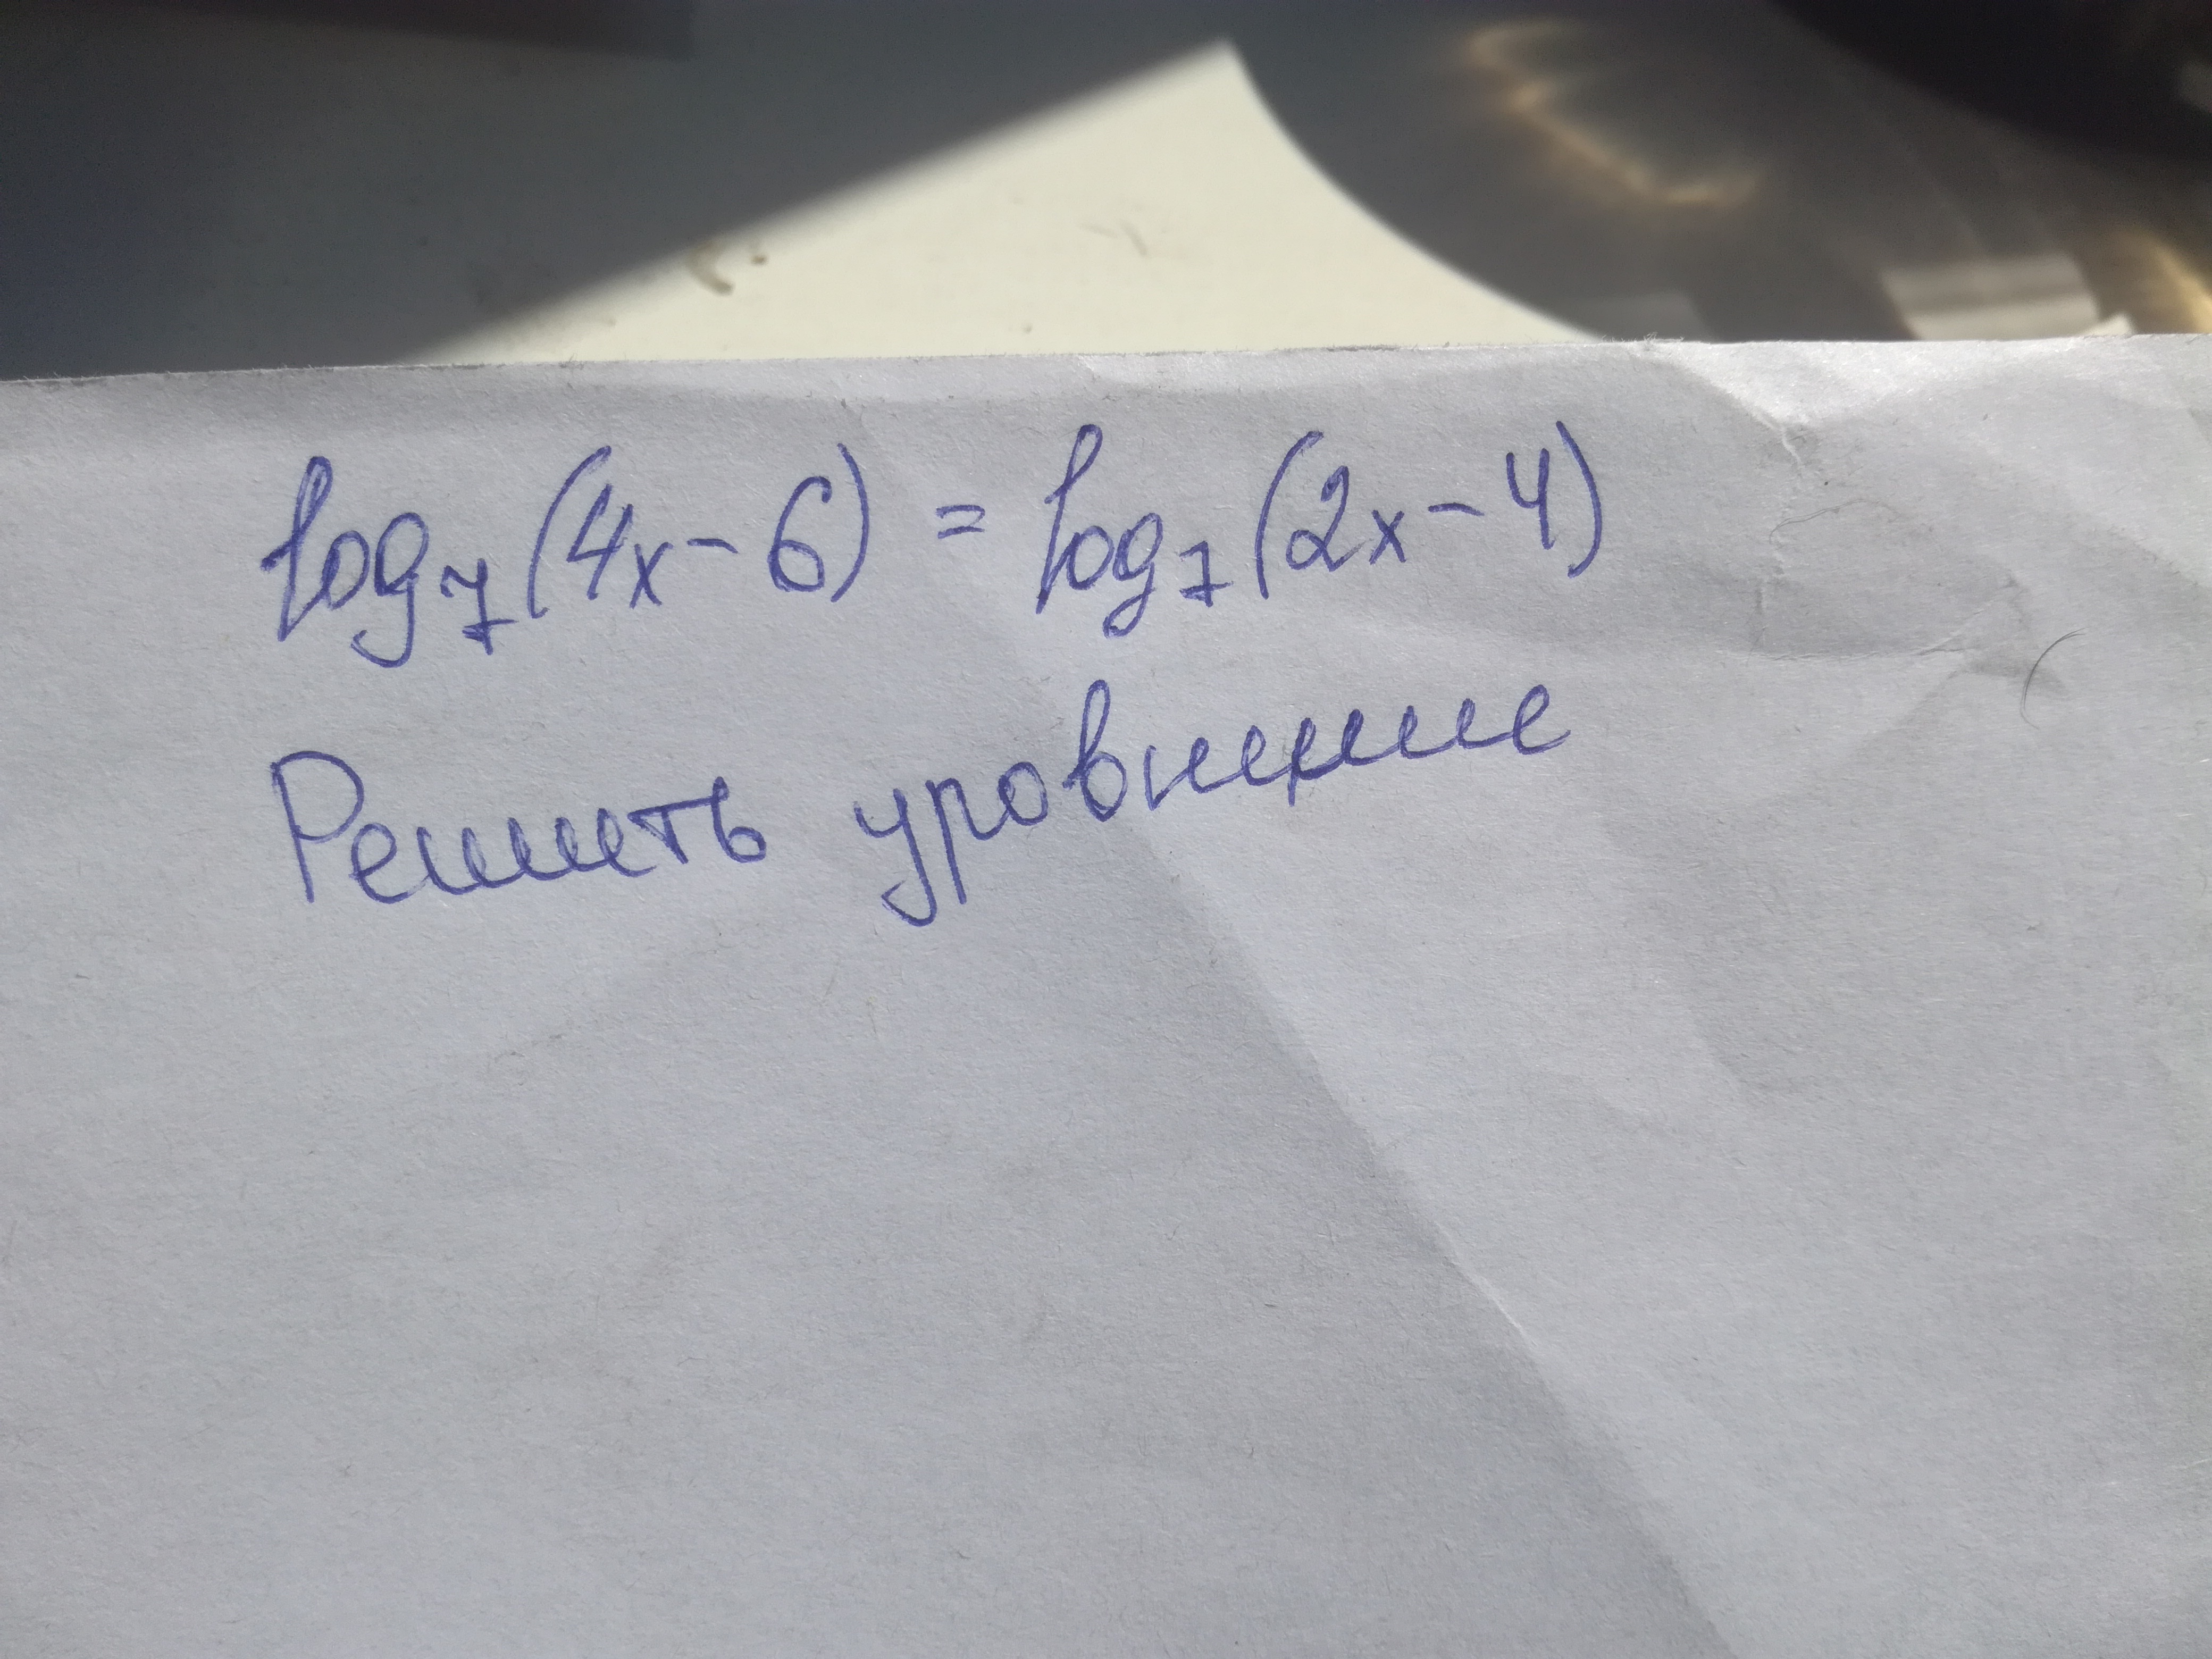 log₇(4x-6) = log₇(2x-4)
Решить уровнение